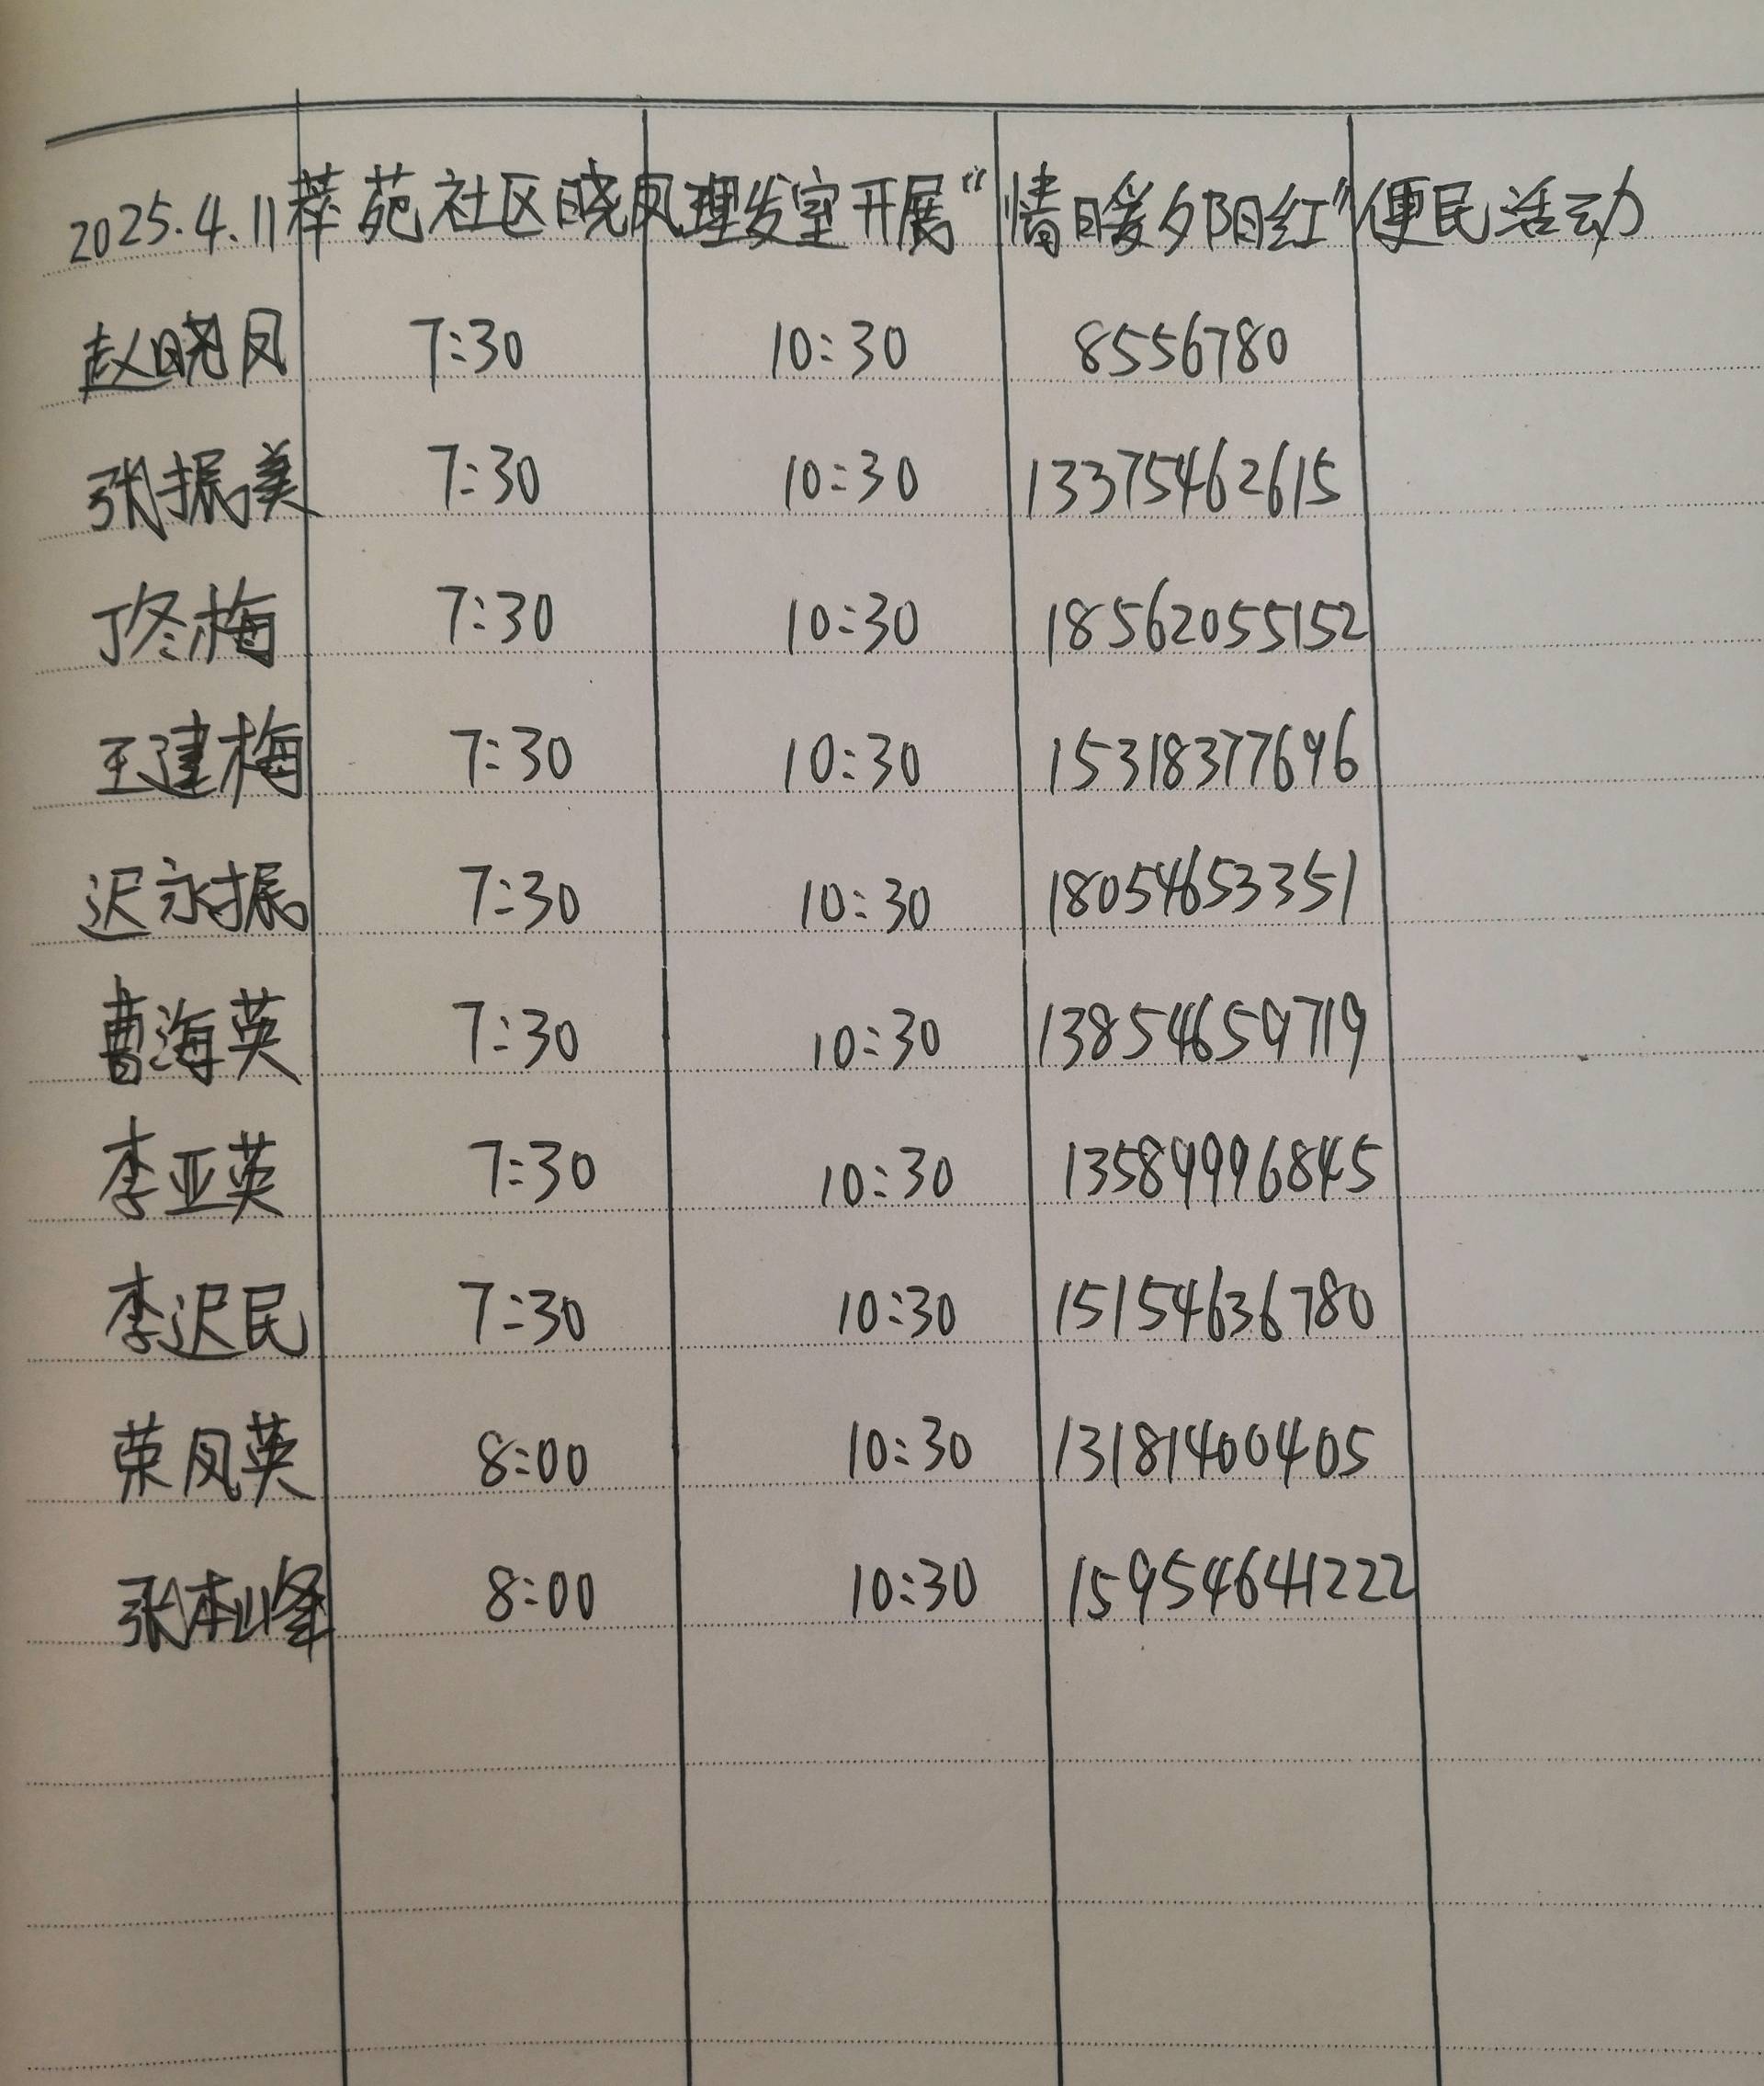 2025.4.11萃苑社区晓凤理发室开展“情暖夕阳红”便民活动
赵晓凤 7:30 10:30 8556780
张振美 7:30 10:30 13375462615
丁冬梅 7:30 10:30 18562055152
王建梅 7:30 10:30 15318377696
迟永振 7:30 10:30 18054653351
曹海英 7:30 10:30 13854659719
李亚英 7:30 10:30 13589996845
李迟民 7:30 10:30 15154636780
荣凤英 8:00 10:30 13181400405
张本峰 8:00 10:30 15954641222